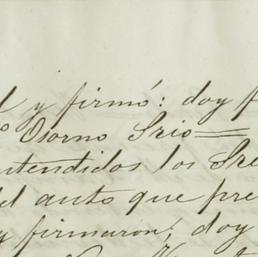 y firmó: doy f
Osorno Srio=
ntendidos los Sre
el auto que pre
y firmaron; doy